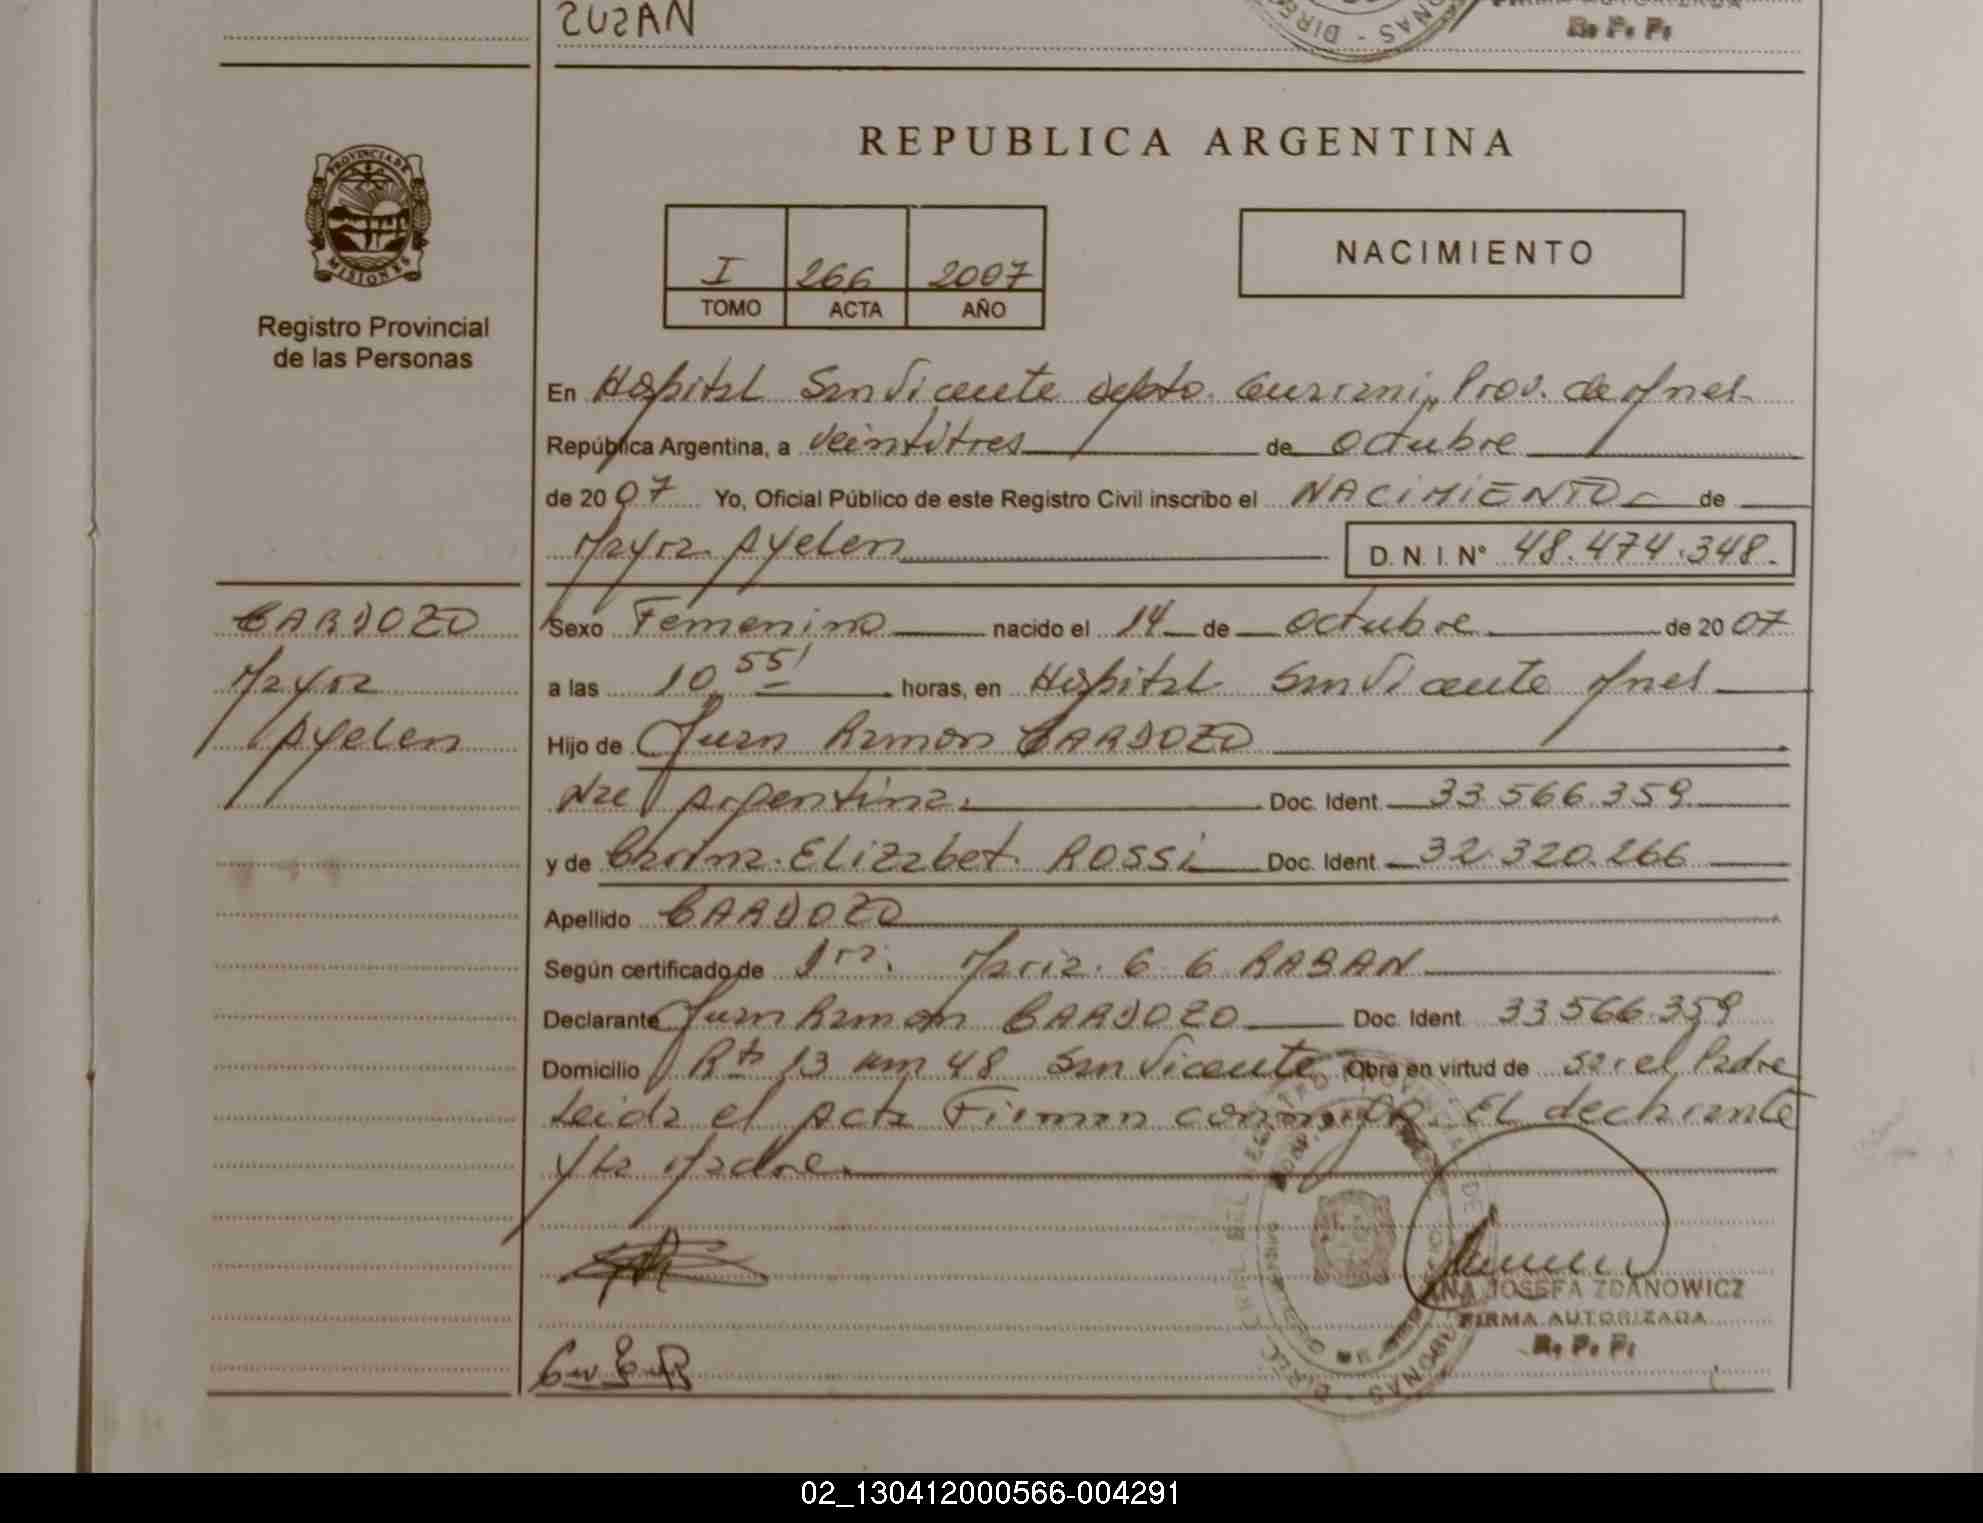 ZUZAN
R. P. P.
REPUBLICA ARGENTINA
PROVINCIA DE MISIONES
Registro Provincial
de las Personas
I 266 2007
TOMO ACTA AÑO
NACIMIENTO
En Hospital San Vicente depto. Guarani, Prov. de Mnes
República Argentina, a veintitres de octubre
de 2007 Yo, Oficial Público de este Registro Civil inscribo el NACIMIENTO de
Mayra Ayelen D. N. I. N° 48.474.348.
CARDOZO
Mayra
Ayelen
Sexo Femenino nacido el 14 de octubre de 2007
a las 10,55' horas, en Hospital San Vicente Mnes
Hijo de Juan Ramon CARDOZO
Nac Argentina. Doc. Ident. 33.566.359
y de Carina Elizabet ROSSI Doc. Ident. 32.320.266
Apellido CARDOZO
Según certificado de Dra. Maria G G RABAN
Declarante Juan Ramon CARDOZO Doc. Ident. 33.566.359
Domicilio Rta 13 km 48 San Vicente Obra en virtud de ser el Padre
Leida el Acta Firman conmigo. El declarante
y la Madre.
ANA JOSEFA ZDANOWICZ
FIRMA AUTORIZADA
R. P. P.
02_130412000566-004291